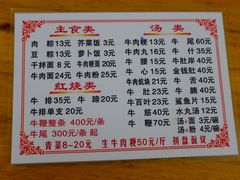 主食类
肉 粽 13元 芥菜饭 3元
豆 粽 13元 萝卜饭 3元
干拌面 8元 牛肉粳面 20元
牛肉面 24元 牛肉粉 25元
红烧类
牛 排 35元 牛 蹄 20元
牛排单支 20元
牛鞭整条 400元/条
牛尾 300元/条 起
汤 类
牛肉粳 13元 牛 尾 60元
牛肉丸 16元 牛 筋 35元
牛 腩 35元 牛肚
牛 心 35元 金钱肚
牛 肚 35元 牛
牛百叶 23元 鲨鱼丸 12元
牛 筋 45元 水丸汤 12元
牛 鞭 70元 汤+面 3元
汤+粉 4元/碗
青菜8-20元 生牛肉粳50元/斤 拼盘面议